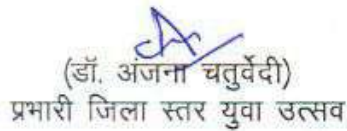 (डॉ. अंजना चतुर्वेदी)
प्रभारी जिला स्तर युवा उत्सव